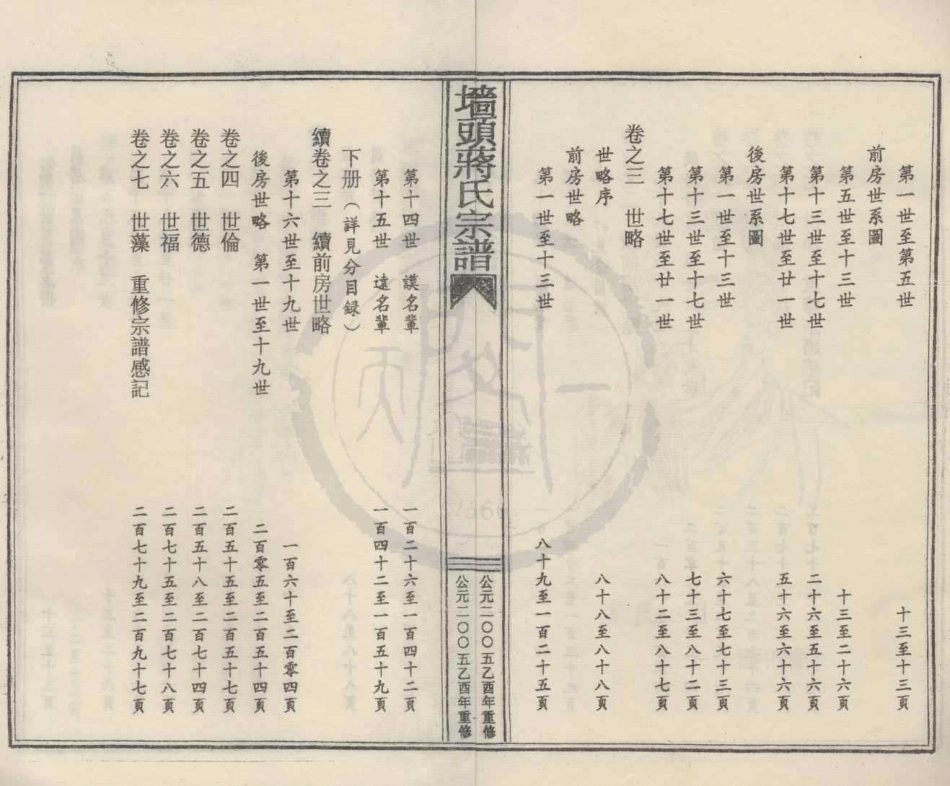 第一世至第五世　十三至十三頁
前房世系圖
第五世至十三世　十三至二十六頁
第十三世至十七世　二十六至五十六頁
第十七世至廿一世　五十六至六十六頁
後房世系圖
第一世至十三世　六十七至七十三頁
第十三世至十七世　七十三至八十二頁
第十七世至廿一世　八十二至八十七頁
卷之三　世略
世略序　八十八至八十八頁
前房世略
第一世至十三世　八十九至一百二十五頁
墻頭蔣氏宗譜
公元二００五乙酉年重修
公元二００五乙酉年重修
第十四世　謨名輩　一百二十六至一百四十二頁
第十五世　遠名輩　一百四十二至一百五十九頁
下册（詳見分目録）
續卷之三　續前房世略
第十六世至十九世　一百六十至二百零四頁
後房世略　第一世至十九世　二百零五至二百五十四頁
卷之四　世倫　二百五十五至二百五十七頁
卷之五　世德　二百五十八至二百七十四頁
卷之六　世福　二百七十五至二百七十八頁
卷之七　世藻　重修宗譜感記　二百七十九至二百九十七頁